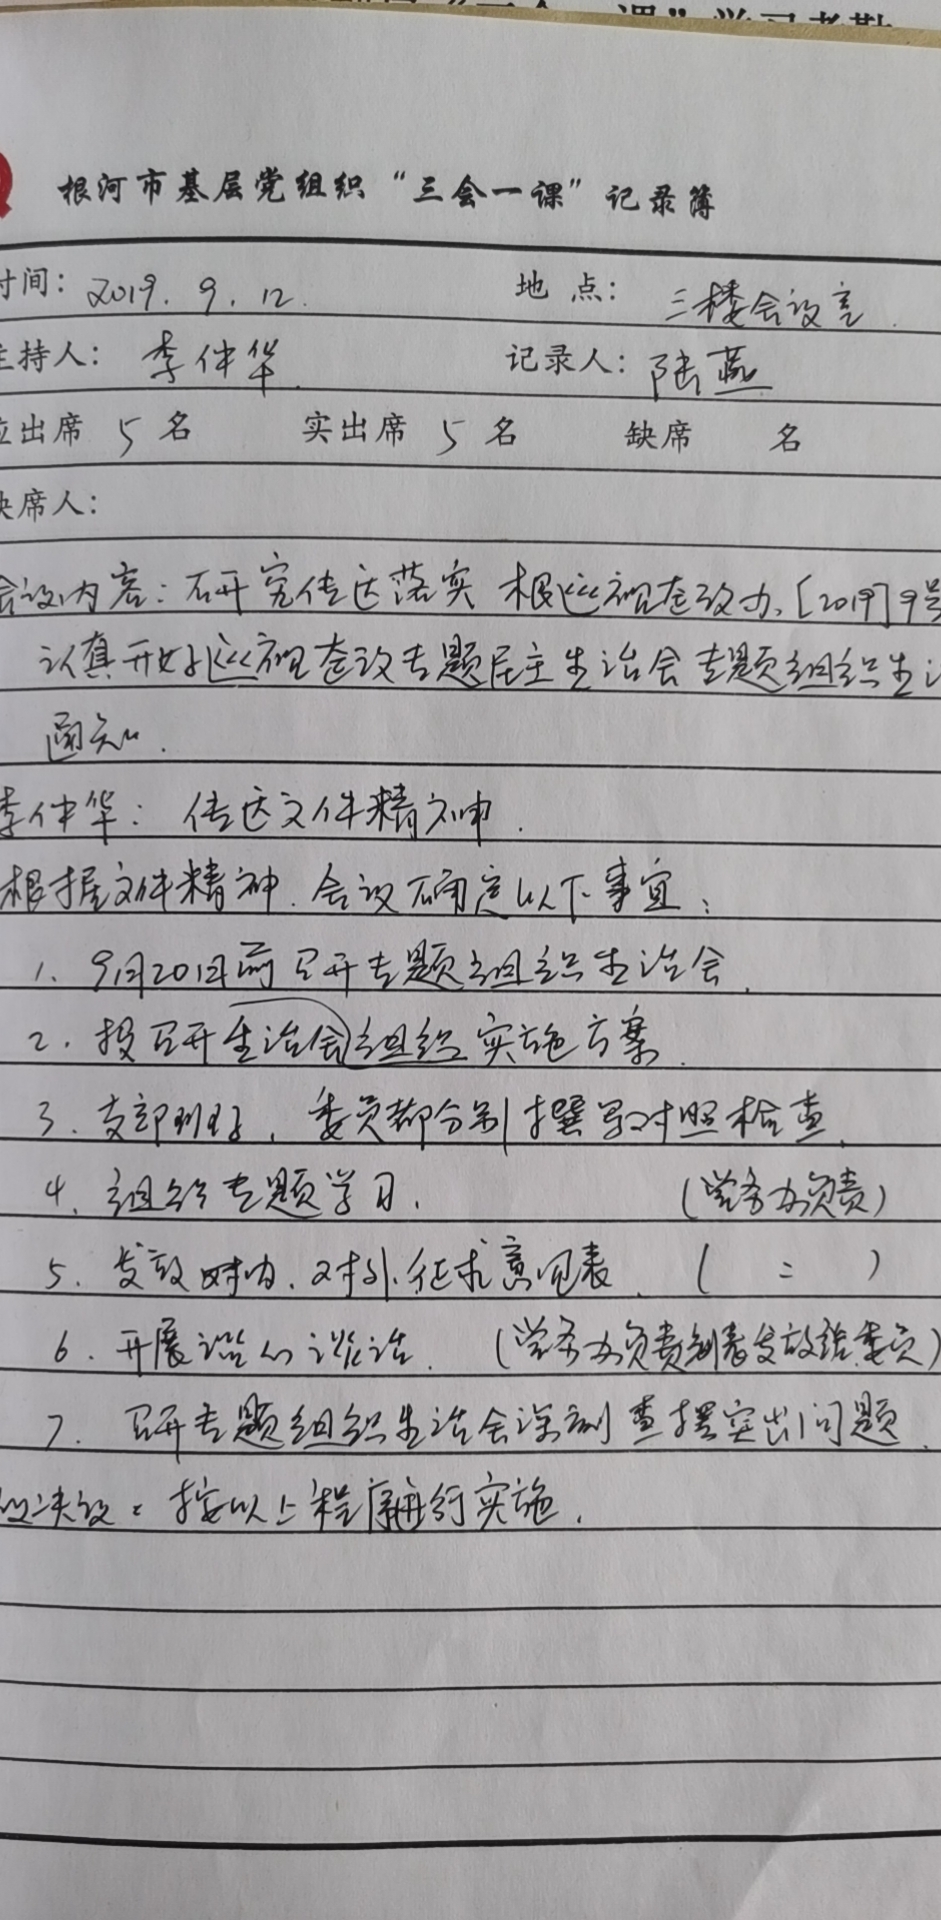 根河市基层党组织“三会一课”记录簿
时间：2019.9.12. 地点：三楼会议室.
主持人：李仲华. 记录人：陆燕
应出席 5 名 实出席 5 名 缺席 名
缺席人：
会议内容：研究传达落实 根巡视整改办.[2019]9号
认真开好巡视整改专题民主生活会专题组织生活
通知.
李仲华：传达文件精神.
根据文件精神.会议确定以下事宜：
1.9月20日前召开专题组织生活会.
2.按召开生活会组织实施方案.
3.支部班子，委员都分别撰写对照检查.
4.组织专题学习. (党务办负责)
5.发放对内.对外征求意见表. ( = )
6.开展谈心谈话. (党务办负责制表发放给委员)
7.召开专题组织生活会深刻查摆突出问题.
议决议：按以上程序再行实施.